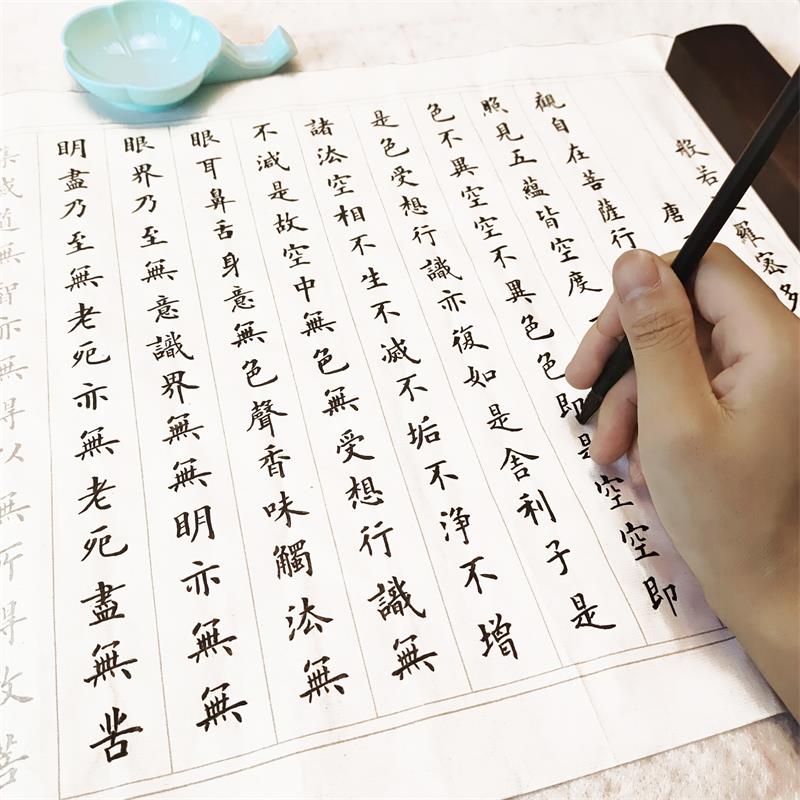 般若羅密多
唐
觀自在菩薩行
照見五蘊皆空度
色不異空空不異色色即是空空即
是色受想行識亦復如是舍利子是
諸法空相不生不滅不垢不淨不增
不減是故空中無色無受想行識無
眼耳鼻舌身意無色聲香味觸法無
眼界乃至無意識界無無明亦無無
明盡乃至無老死亦無老死盡無苦
集滅道無智亦無得以無所得故菩